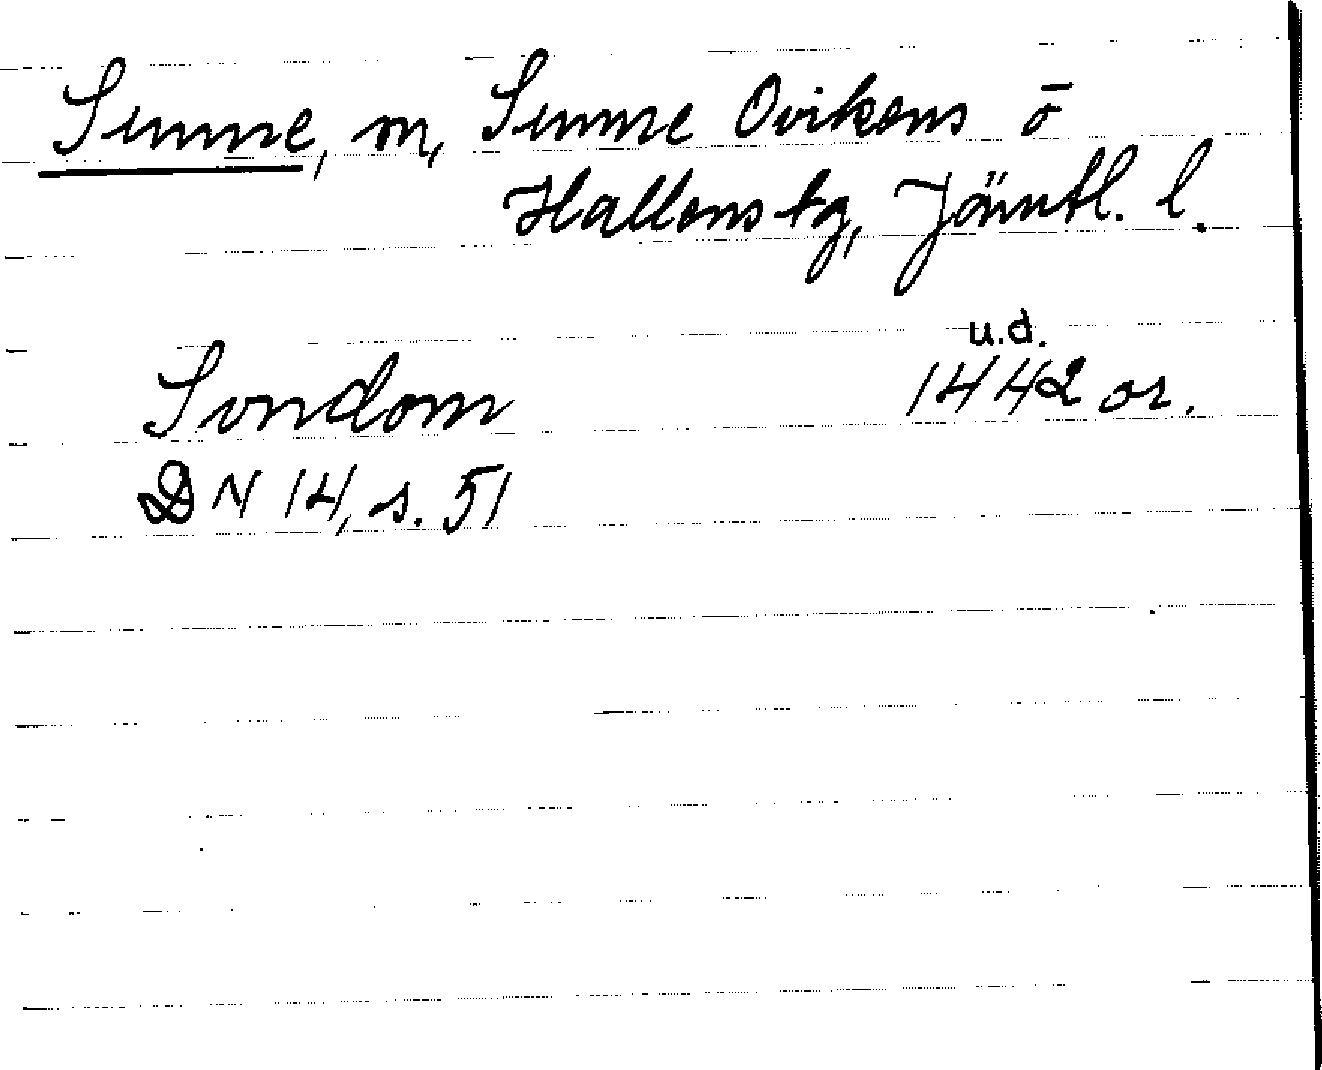 Sunne, m, Sunne Ovikens o
Hallens tg, Jämtl. l.
u.d.
Sundom 1442 or.
DN 14, s. 51